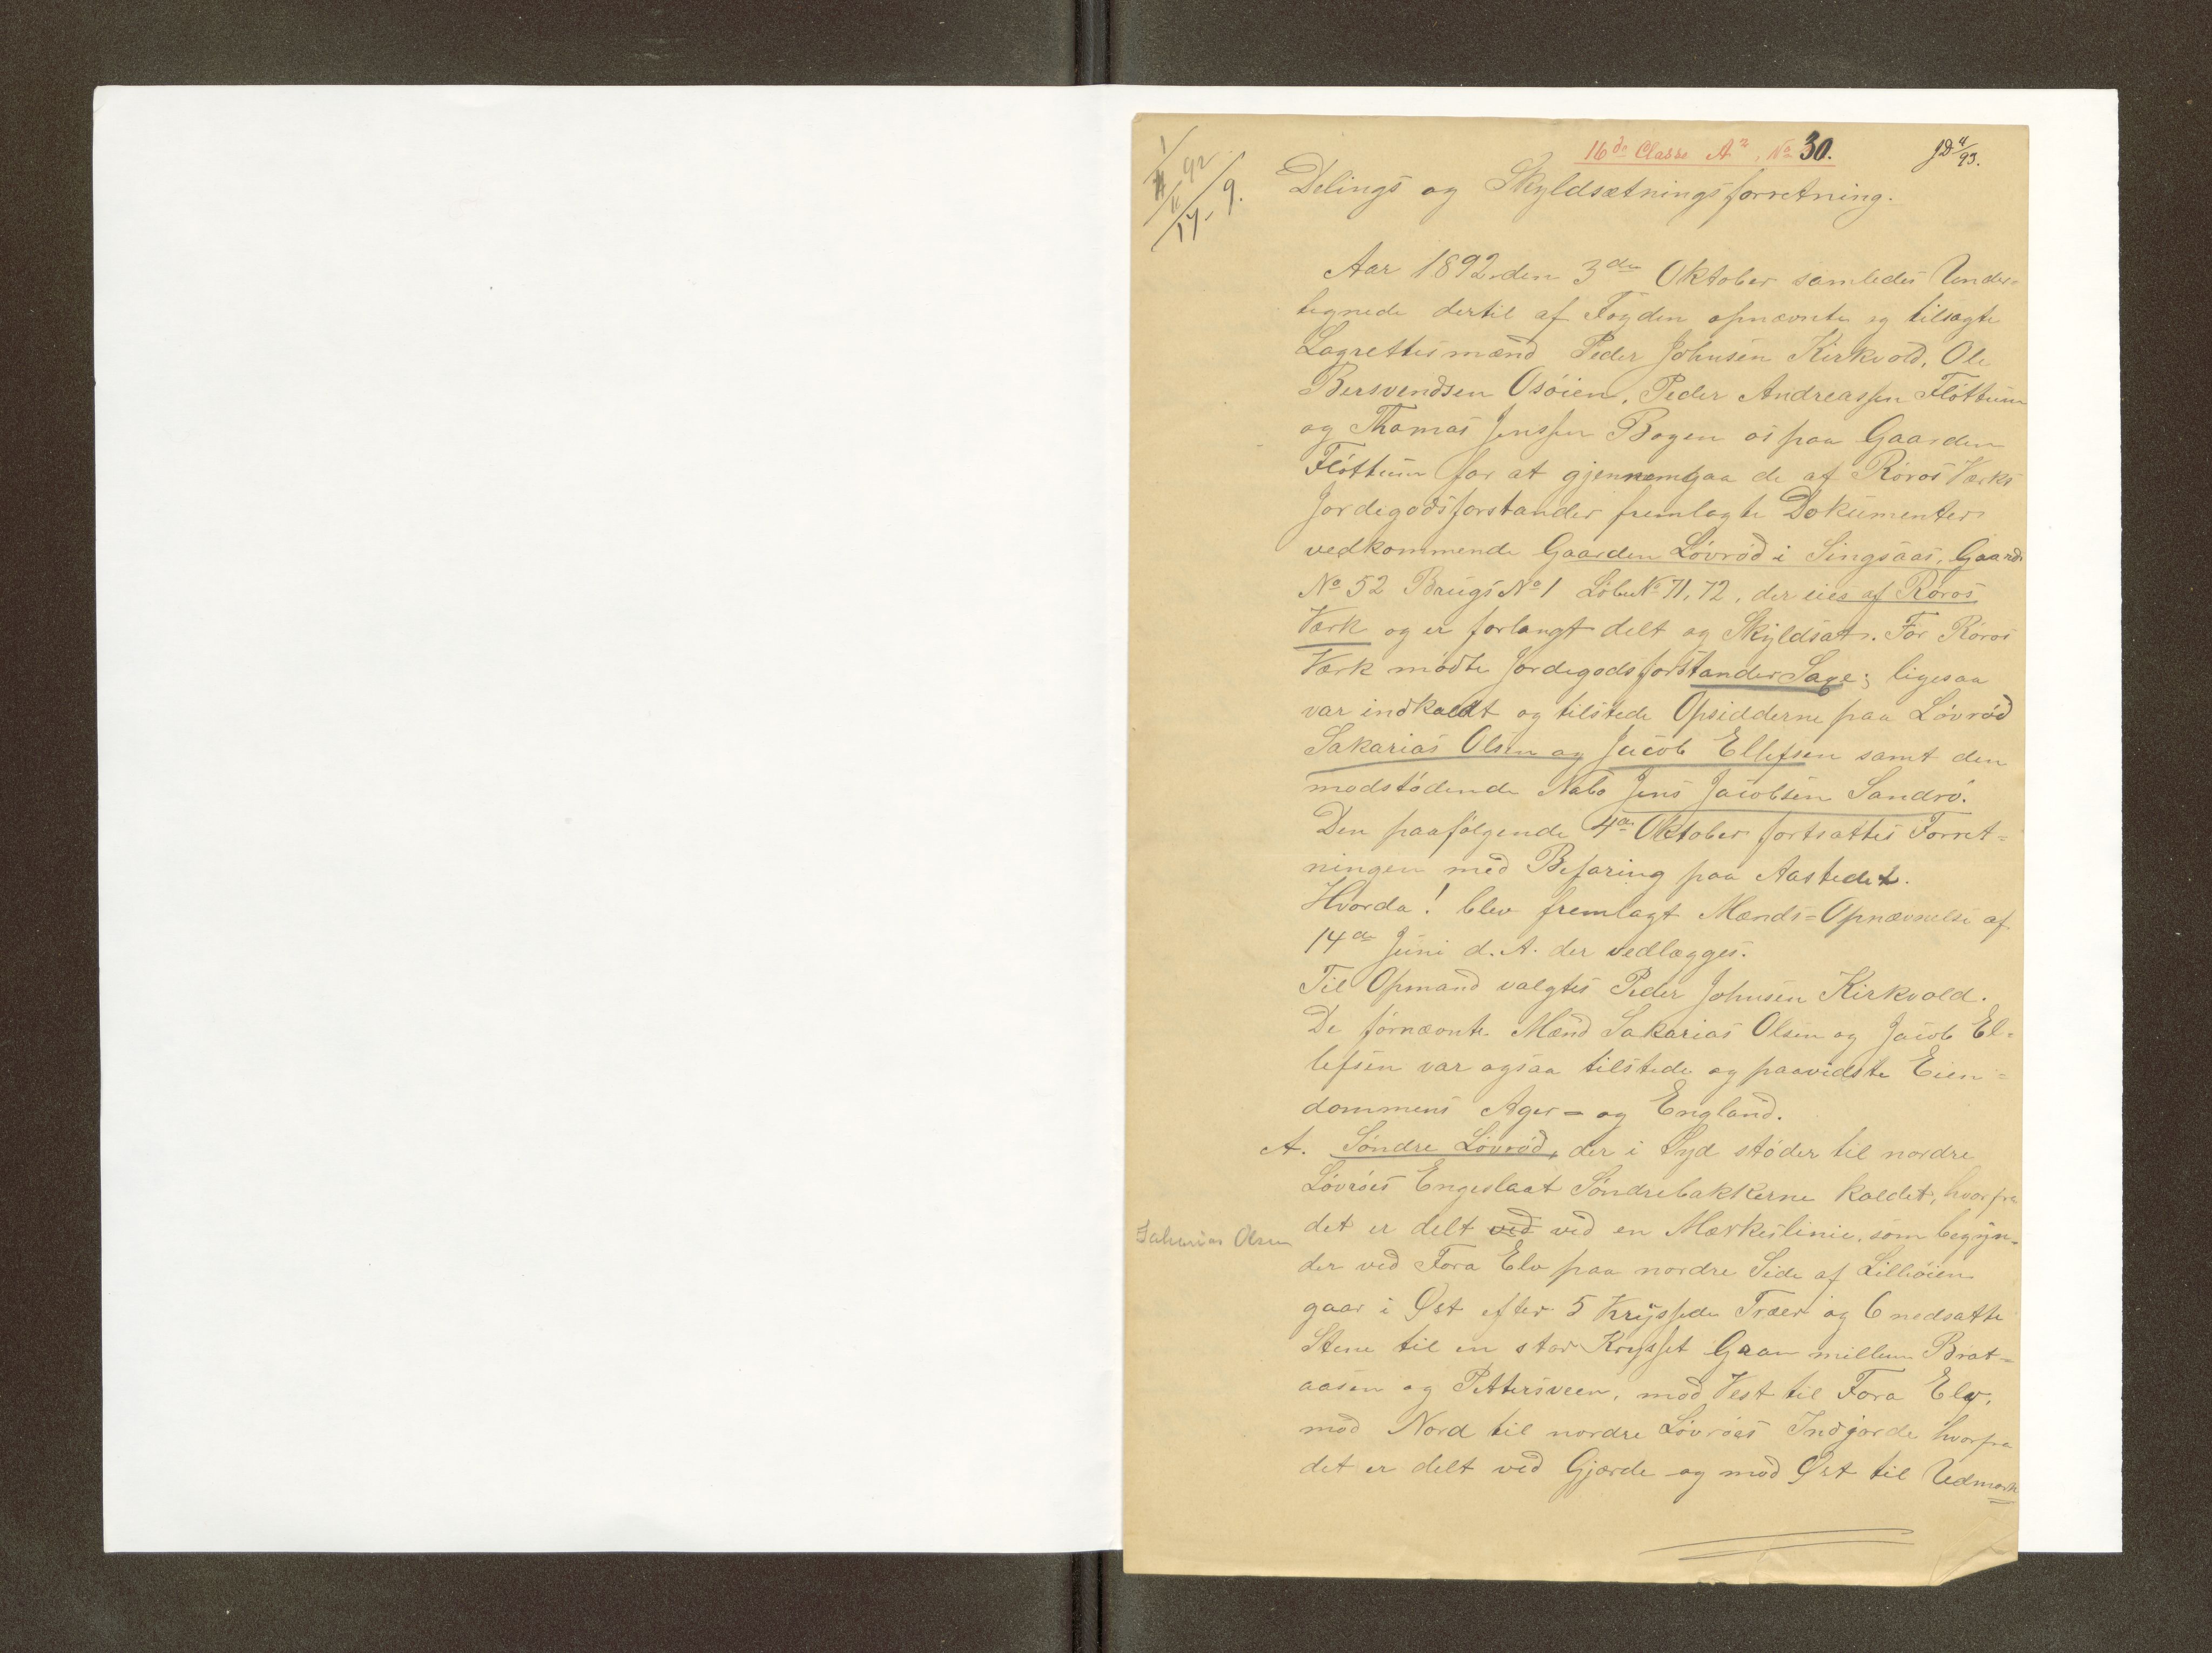 16de Classe A2, No 30.
Delings og Skyldsætningsforretning.
Aar 1892 den 3die Oktober samledes Under-
tegnede dertil af Fogden opnævnte og tilsagte
Lagrettesmænd Peder Johnsen Kirkvold, Ole
Bersvendsen Osøien, Peder Andreassen Fløttum
og Thomas Jenssen Bogen os paa Gaarden
Fløttum for at gjennemgaa de af Røros Værks
Jordegodsforstander fremlagte Dokumenter
vedkommende Gaarden Løvrød i Singsaas, Gaards
No 52 Brugs No 1 Løbe No 71, 72, der eies af Røros
Værk og er forlangt delt og Skyldsat. For Røros
Værk mødte Jordegodsforstander Saxe; ligesaa
var indkaldt og tilstede Opsidderne paa Løvrød
Sakarias Olsen og Jacob Ellefsen samt den
modstødende Nabo Jens Jacobsen Sandrø.
Den paafølgende 4de Oktober fortsattes Forret=
ningen med Befaring paa Aastedet.
Hvorda! blev fremlagt Mænds=Opnævnelse af
14de Juni d. A. der vedlægges.
Til Opmand valgtes Peder Johnsen Kirkvold.
De førnævnte Mænd Sakarias Olsen og Jacob El=
lefsen var ogsaa tilstede og paavidste Eien=
dommens Ager= og England.
A. Søndre Løvrød, der i Syd støder til nordre
Løvrøes Engeslaat Søndrebakkerne kaldet, hvorfra
Sakarias Olsen
det er delt ved ved en Mærkeslinie, som begyn=
der ved Fora Elv paa nordre Side af Lilleøien
gaar i Øst efter 5 Kryssede Træer og 6 nedsatte
Stene til en stor Krysset Gran mellem Brat=
aasen og Pettersveen, mod Vest til Fora Elv,
mod Nord til nordre Løvrøes Indgjorde hvorfra
det er delt ved Gjærde og mod Øst til Udmark